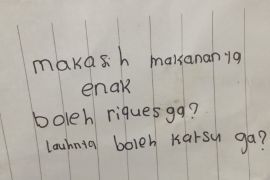 makasih makananya
enak
boleh riques ga?
lauhnya boleh katsu ga?